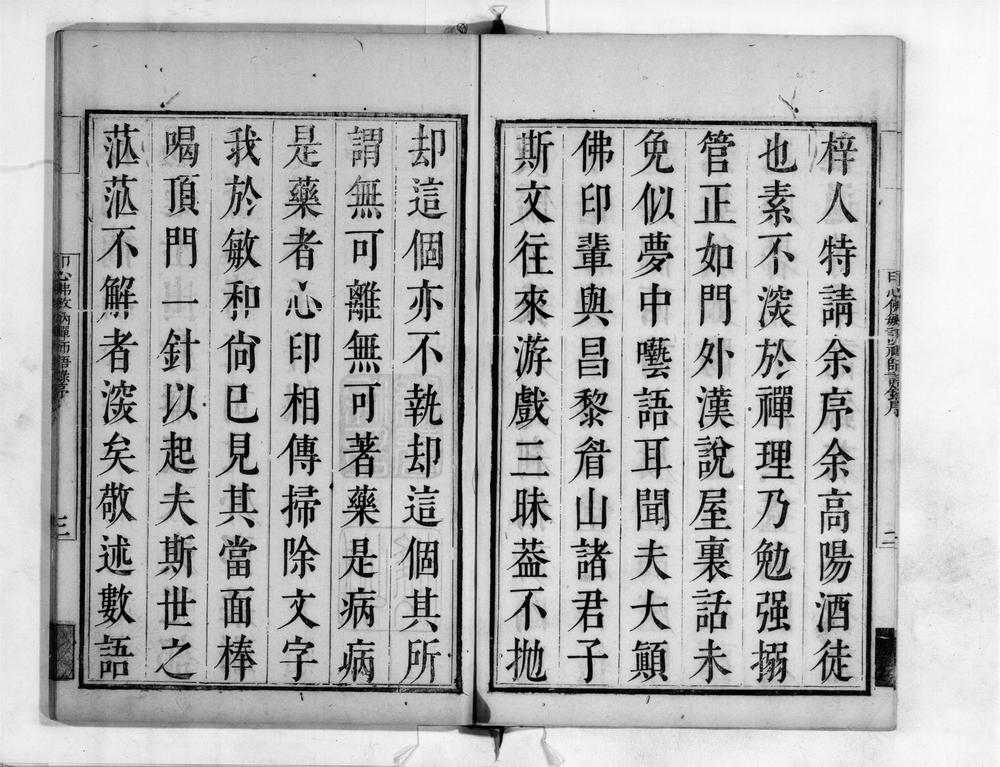 梓人特請余序余高陽酒徒
也素不深於禪理乃勉强搦
管正如門外漢說屋裏話未
免似夢中囈語耳聞夫大顚
佛印輩與昌黎眉山諸君子
斯文往來游戲三昧葢不抛
却這個亦不執却這個其所
謂無可離無可著藥是病病
是藥者心印相傳掃除文字
我於敏和尙已見其當面棒
喝頂門一針以起夫斯世之
茫茫不解者深矣敬述數語
二
三